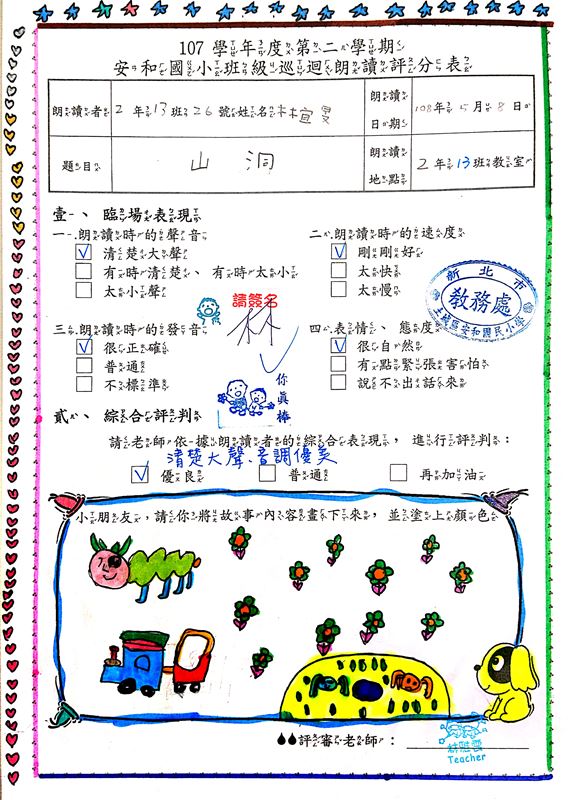 107 學年度第二學期
安和國小班級巡迴朗讀評分表
朗讀者 2 年 13 班 26 號姓名 林楦旻
朗讀日期 108 年 5 月 8 日
題目 山洞
朗讀地點 2 年 13 班教室
壹、臨場表現
一、朗讀時的聲音
清楚大聲
有時清楚、有時太小
太小聲
二、朗讀時的速度
剛剛好
太快
太慢
新北市
教務處
土城區安和國民小學
請簽名
林
三、朗讀時的發音
很正確
普通
不標準
四、表情、態度
很自然
有點緊張害怕
說不出話來
你真棒
貳、綜合評判
請老師依據朗讀者的綜合表現，進行評判：
清楚大聲、音調優美
優良
普通
再加油
小朋友，請你將故事內容畫下來，並塗上顏色
評審老師：
Teacher